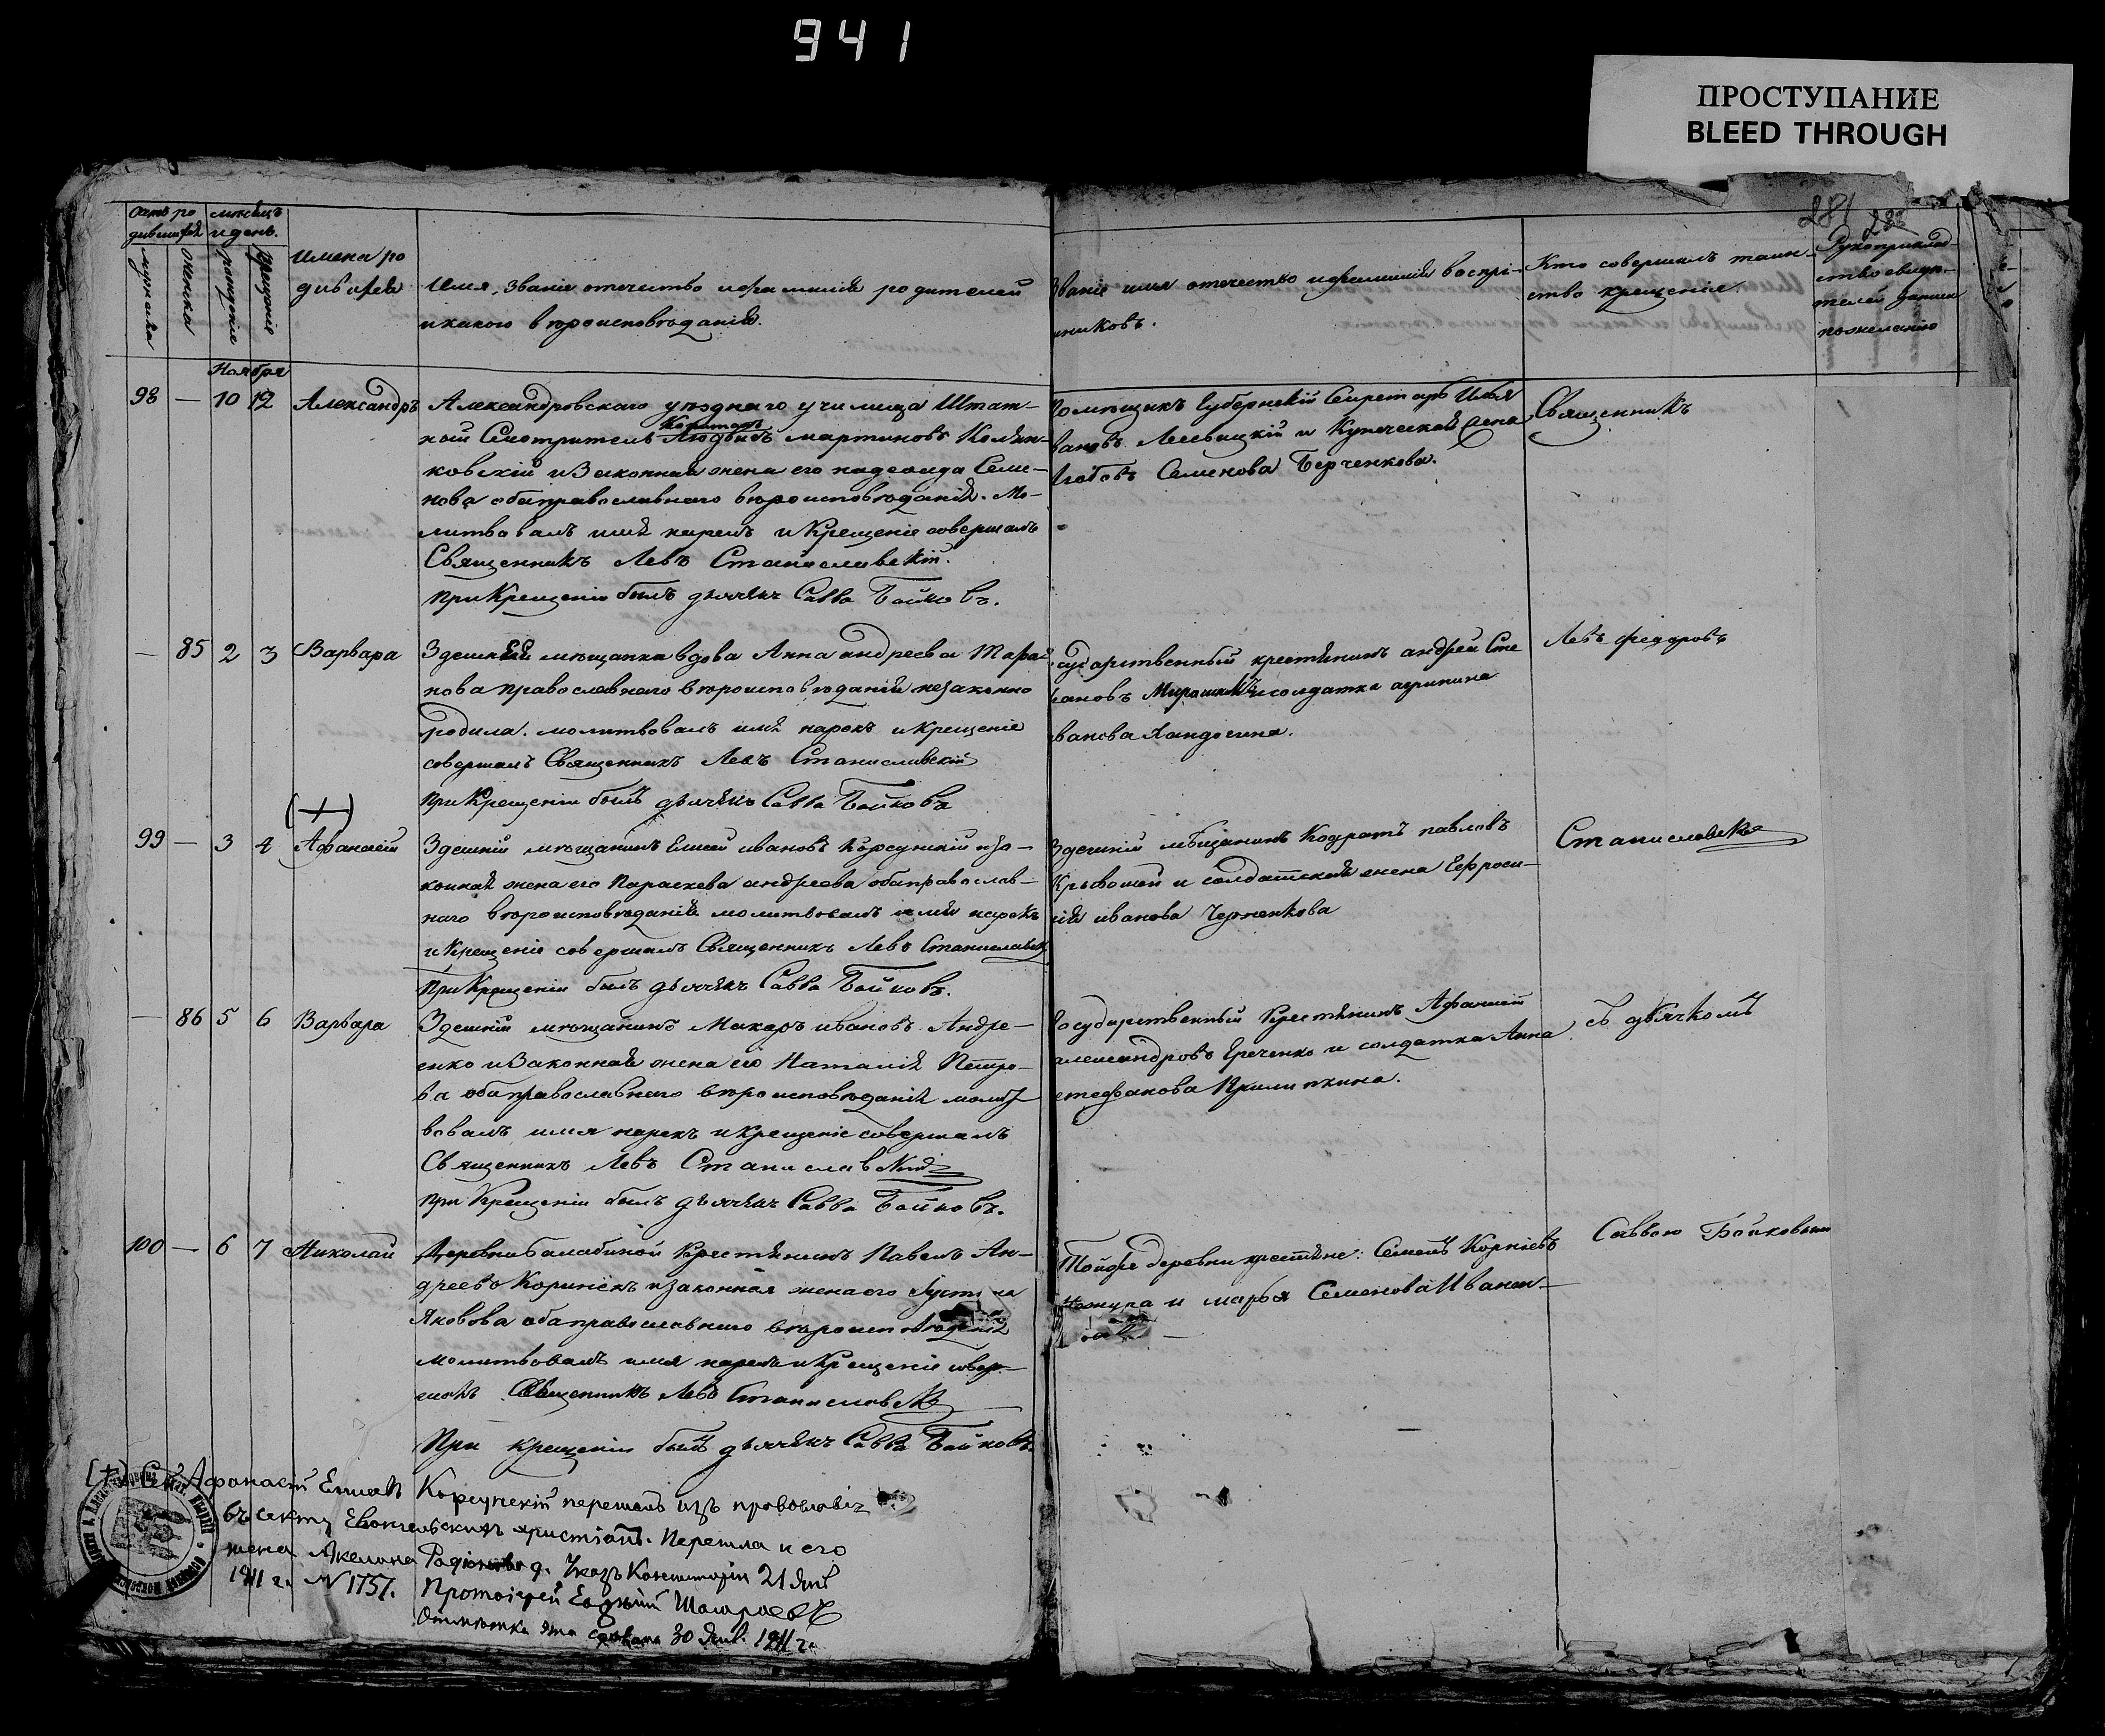 941
ПРОСТУПАНИЕ
BLEED THROUGH
281
282
Счетъ ро
дившихся
мѣсяцъ
и день.
мужеска
женска
рожденіе
крещеніе
Имена ро
дившихся
Имя, Званіе отечество и фамилія родителей
и какого вѣроисповѣданія.
Званіе имя отечество и фамилія воспрі-
мниковъ.
Кто совершалъ таин-
ство крещенія.
Рукоприклад-
ство свидѣ-
телей записи
по желанію
Ноября
98 — 10 12 Александръ
Александровскаго уѣзднаго училища Штат-
ный Смотритель Людвигъ Мартиновъ
ковскій и Законная жена его надежда Семе-
нова оба православнаго вѣроисповѣданія. Мо-
литвовалъ имя нарекъ и Крещеніе совершалъ
Священникъ Левъ Станиславскій.
При Крещеніи былъ дьячекъ Савва Бойковъ.
Помѣщикъ Губернскій Секретарь Илья
вановъ и Купеческая жена
Любовь Семенова Берченкова.
Священникъ
— 85 2 3 Варвара
Здешняя мѣщанка вдова Анна андреева Тара
нова православнаго вѣроисповѣданія незаконно
родила. молитвовалъ имя нарекъ и крещеніе
совершалъ Священникъ Левъ Станиславскій
При Крещеніи былъ дьячекъ Савва Бойковъ
сударственный крестянинъ андрей Сте
пановъ и солдатка агрипина
ванова
Левъ Федоровъ
(+)
99 — 3 4 Афанасій
Здешній мѣщанинъ Елисей ивановъ Корсунскій и за-
конная жена его Параскева андреева оба православ-
наго вѣроисповѣданія молитвовалъ имя нарекъ
и Крещеніе совершалъ Священникъ Левъ Станиславск
При Крещеніи былъ дьячекъ Савва Бойковъ.
Здешній мѣщанинъ Кодратъ павловъ
Кривошей и солдатская жена Ефроси-
нія иванова
Станиславскій
— 86 5 6 Варвара
Здешній мѣщанинъ Макаръ ивановъ Андре-
енко и Законная жена его Наталія Петро-
ва оба православнаго вѣроисповѣданія молит
вовалъ имя нарекъ и крещеніе совершалъ
Священникъ Левъ Станиславскій
при Крещеніи былъ дьячекъ Савва Бойковъ.
Государственный Крестянинъ Афанасій
александровъ и солдатка Анна
стефанова
съ дьячкомъ
100 — 6 7 Николай
Деревни Балабиной Крестянинъ Павелъ Ан-
дреевъ и законная жена его Густина
Яковова оба православнаго вѣроисповѣданія
молитвовалъ имя нарекъ и Крещеніе совер-
шалъ Священникъ Левъ Станиславскій
При крещеніи былъ дьячекъ Савва Бойковъ.
Тойже деревни крестяне: Семенъ Корніевъ
и марфа Семенова Иванен-
Саввою Бойковымъ
(+) Афанасій Елисеевъ Корсунскій перешелъ изъ православія
въ секту Евангельскихъ христіанъ. Перешла и его
жена Акелина Указъ Консисторіи 21 Янв
1911 г. N 1757. Протоіерей
Отмѣтка эта сдѣлана 30 Янв. 1911 г.